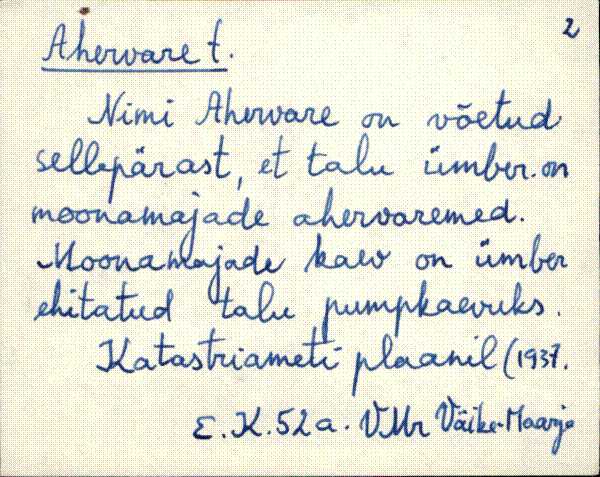 2
Ahervare t.
Nimi Ahervare on võetud
sellepärast, et talu ümber on
moonamajade ahervaremed.
Moonamajade kaev on ümber
ehitatud talu pumpkaevuks.
Katastriameti plaanil (1937.
E.K. 52a. VMr Väike-Maarja